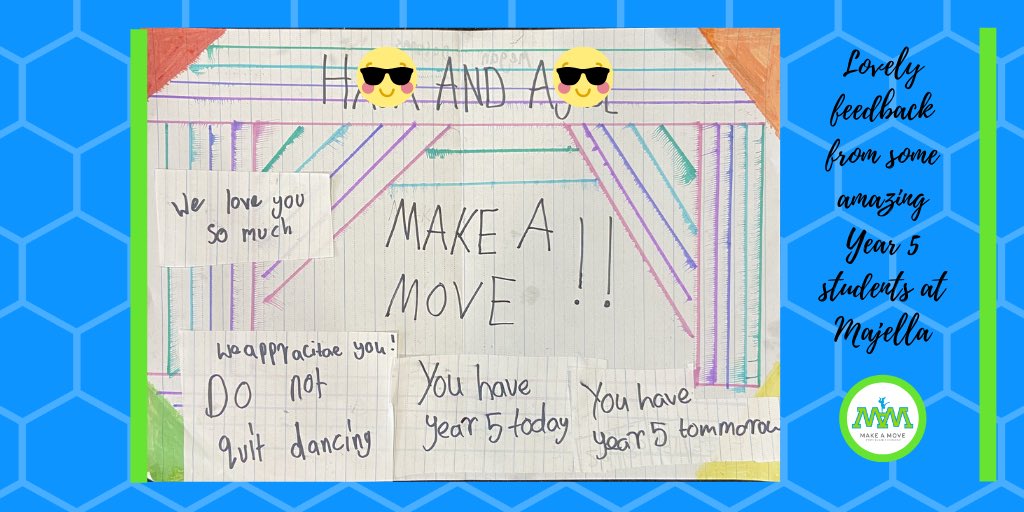 AND
We love you
so much
MAKE A
MOVE !!
We appracitae you!
Do not
quit dancing
You have
year 5 today
You have
year 5 tommorow
Lovely
feedback
from some
amazing
Year 5
students at
Majella
MAM
MAKE A MOVE